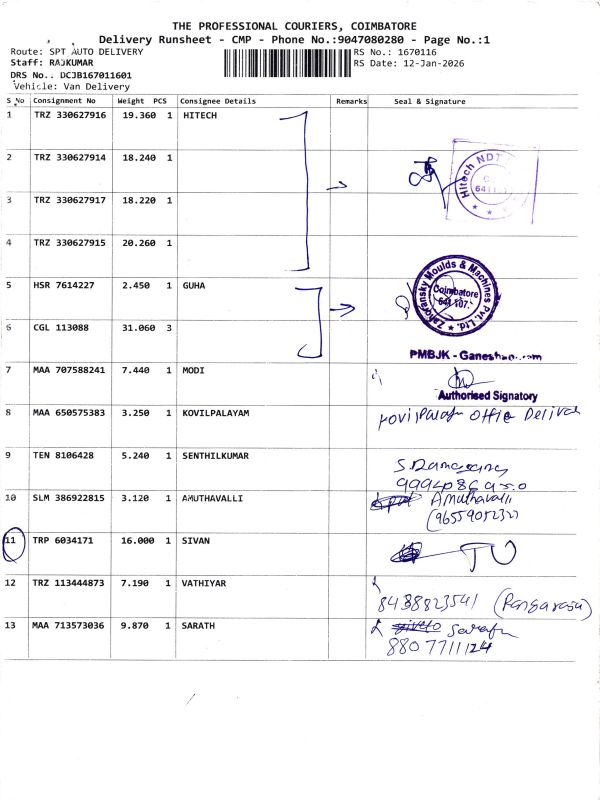 THE PROFESSIONAL COURIERS, COIMBATORE
Delivery Runsheet - CMP - Phone No.:9047080280 - Page No.:1
Route: SPT AUTO DELIVERY
RS No.: 1670116
Staff: RAJKUMAR
RS Date: 12-Jan-2026
DRS No.. DCJB167011601
Vehicle: Van Delivery
S No Consignment No Weight PCS Consignee Details Remarks Seal & Signature
1 TRZ 330627916 19.360 1 HITECH
2 TRZ 330627914 18.240 1
Hitech NDT
3 TRZ 330627917 18.220 1
4 TRZ 330627915 20.260 1
5 HSR 7614227 2.450 1 GUHA
Zahoransky Moulds & Machines Pvt. Ltd.
Coimbatore
641 107.
6 CGL 113088 31.060 3
PMBJK - Ganesh
7 MAA 707588241 7.440 1 MODI
Authorised Signatory
8 MAA 650575383 3.250 1 KOVILPALAYAM
9 TEN 8106428 5.240 1 SENTHILKUMAR
10 SLM 386922815 3.120 1 AMUTHAVALLI
Amuthavalli
11 TRP 6034171 16.000 1 SIVAN
12 TRZ 113444873 7.190 1 VATHIYAR
8438823541
13 MAA 713573036 9.870 1 SARATH
8807711124